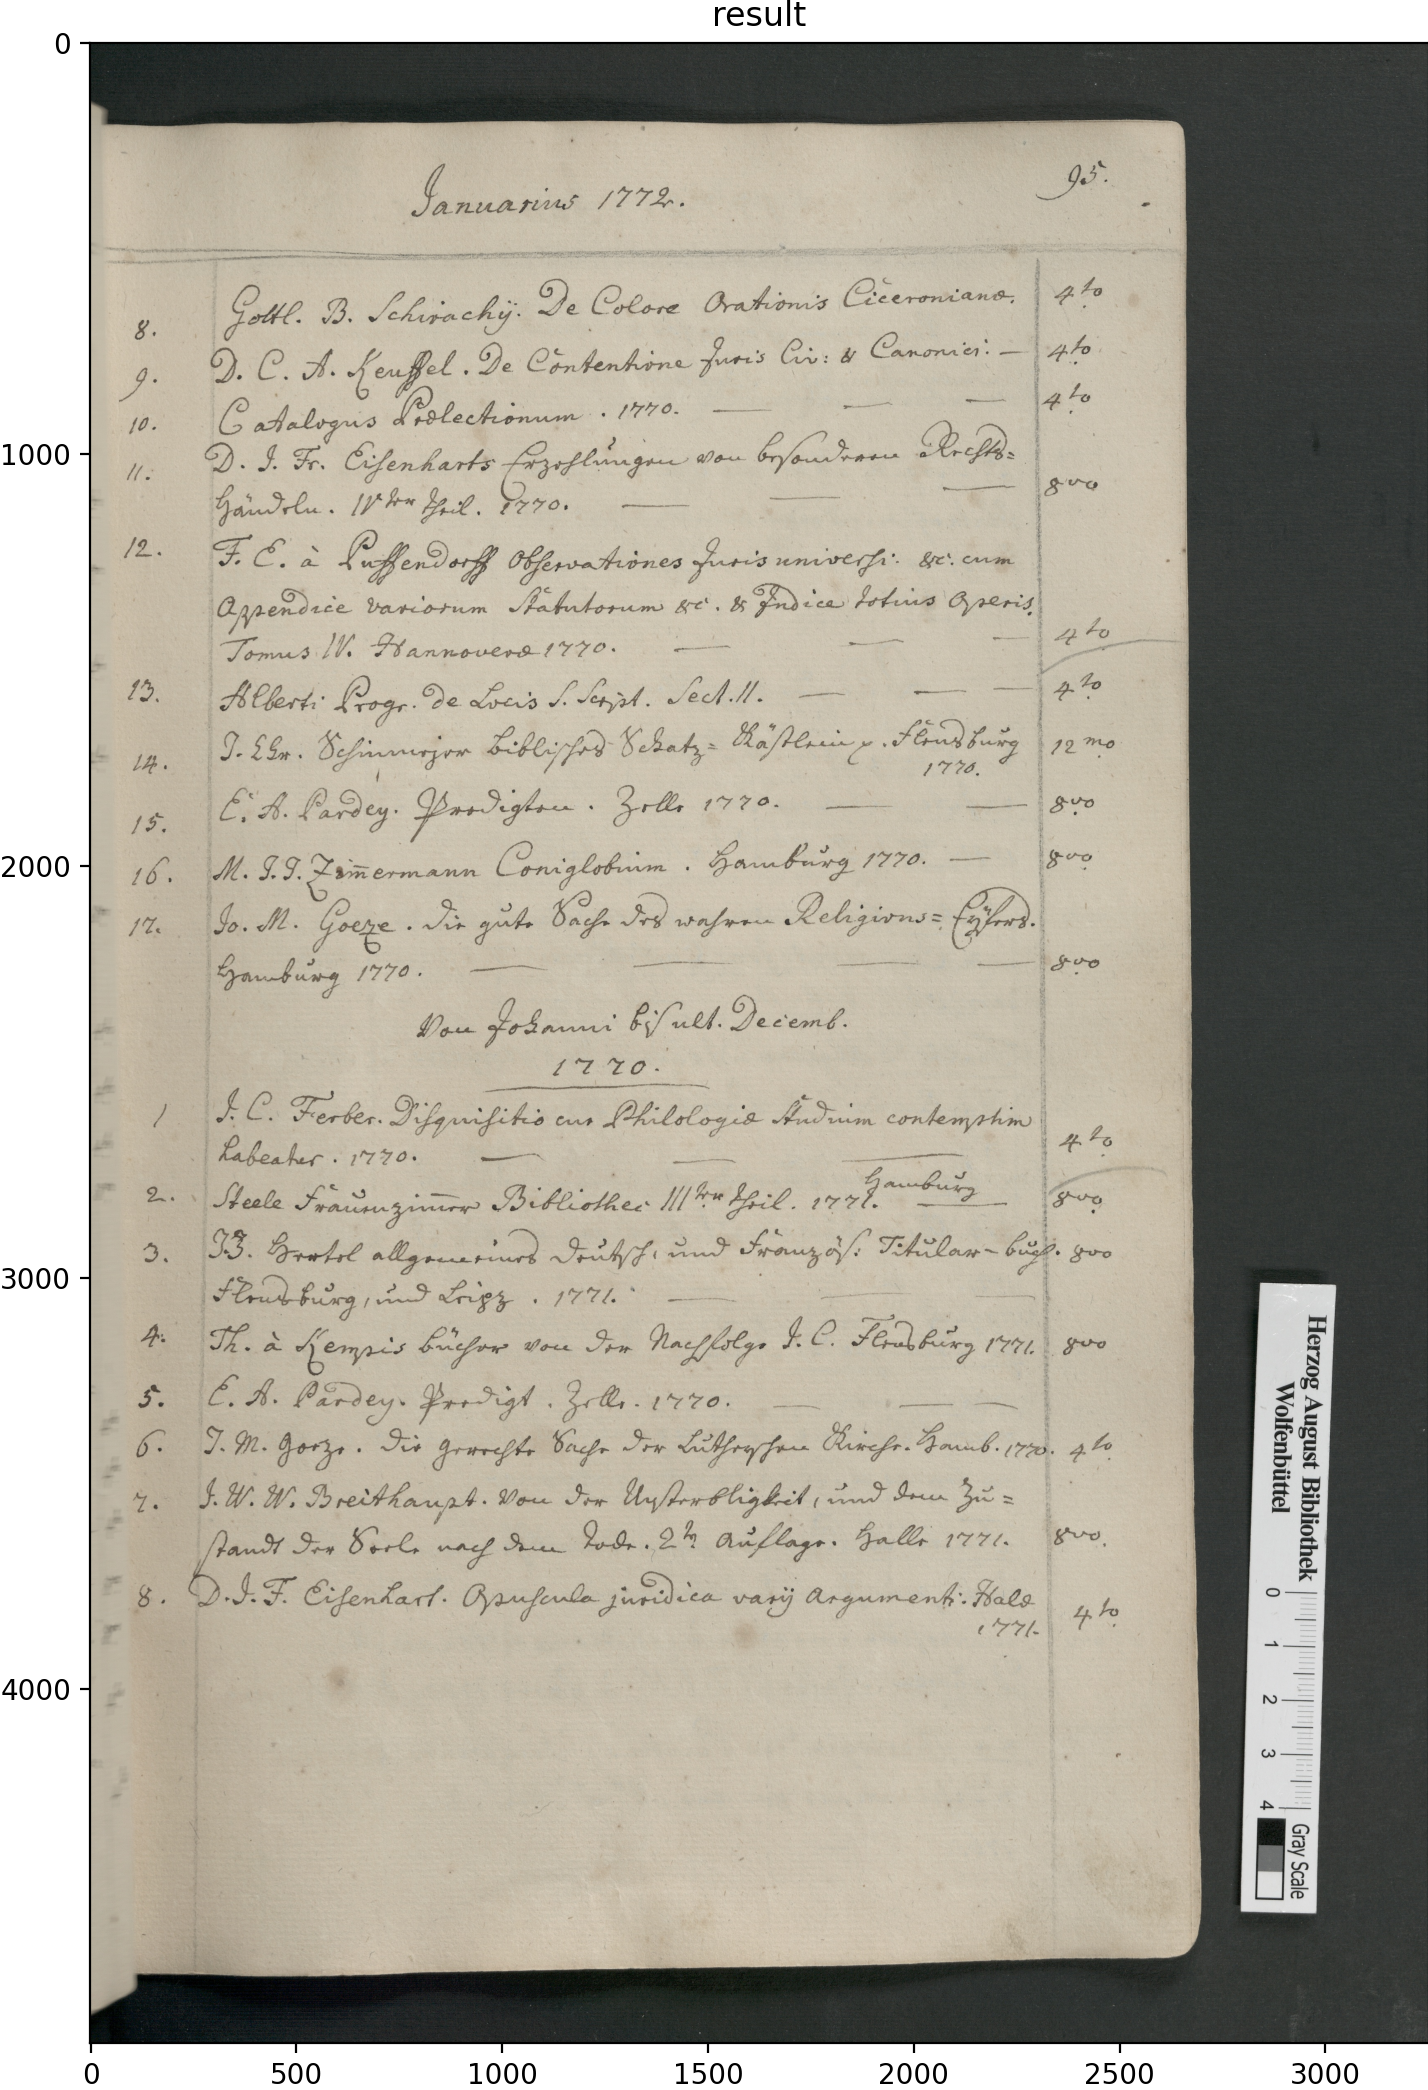 result
Januarius 1772.
95.
8. Gottl. B. Schirachij. De Colore Orationis Ciceronianæ. 4to
9. D. C. A. Keuffel. De Contentione Juris Civ: & Canonici. — 4to
10. Catalogus Prælectionum. 1770. — — — 4to
11. D. J. Fr. Eisenharts Erzehlungen von besonderen Rechts=
Händeln. IVter Theil. 1770. — — — 8vo
12. F. E. à Puffendorff Observationes Juris universi. &c. cum
Appendice variorum Statutorum &c. & Indice totius Operis.
Tomus IV. Hannoveræ 1770. — — — 4to
13. Alberti Progr. de Locis S. Script. Sect. II. — — — 4to
14. J. Chr. Schinmejer Biblisches Schatz= Kästlein p. Flensburg 12mo
1770.
15. E. A. Pardey. Predigten. Zelle 1770. — — 8vo
16. M. J. J. Zimermann Coniglobium. Hamburg 1770. — 8vo
17. Jo. M. Goeze. die gute Sache des wahren Religions= Eyfers.
Hamburg 1770. — — — — 8vo
Von Johanni bis ult. Decemb.
1770.
1 J. C. Ferber. Disquisitio cur Philologiæ studium contemptim
habeatur. 1770. — — — 4to
Hamburg
2. Steele Frauenzimer Bibliothec IIIter Theil. 1771. — 8vo
3. J. J. Hertel allgemeines deutsch, und Französ: Titular-buch. 8vo
Flensburg, und Leipz. 1771. — — —
4. Th. à Kempis bücher von der Nachfolge J. C. Flensburg 1771. 8vo
5. E. A. Pardey. Predigt. Zelle. 1770. — — —
6. J. M. Goeze. die gerechte Sache der Lutherschen Kirche. Hamb. 1770. 4to
7. J. W. W. Breithaupt. Von der Unsterbligkeit, und dem Zu=
stande der Seele nach dem Tode. 2te Auflage. Halle 1771. 8vo.
8. D. J. F. Eisenhart. Opuscula juridica varij Argumenti. Halæ 4to
1771.
Herzog August Bibliothek
Wolfenbüttel
0 1 2 3 4
Gray Scale
0
1000
2000
3000
4000
0 500 1000 1500 2000 2500 3000